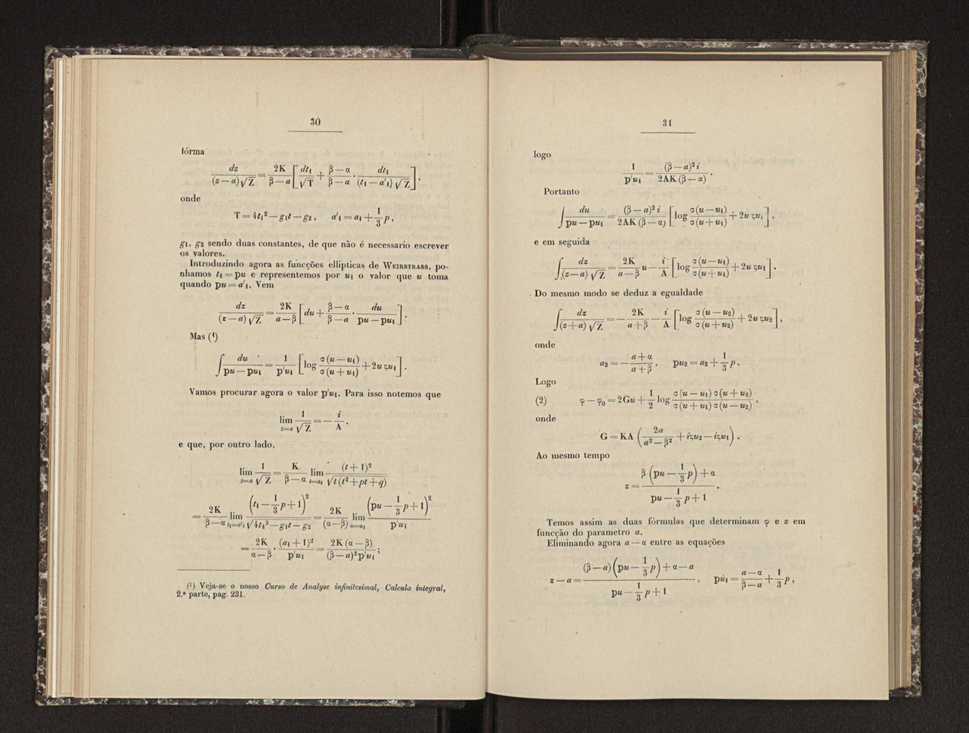 30
fórma
dz/((z — a)√Z) = 2K/(β — a) [dt₁/√T + (β — α)/(β — a) · dt₁/((t₁ — a'₁)√Z)],
onde
T = 4t₁² — g₁t — g₂ ,   a'₁ = a₁ + 1/3 p ,
g₁, g₂ sendo duas constantes, de que não é necessario escrever
os valores.
Introduzindo agora as funcções ellipticas de Weirstrass, po-
nhamos t₁ = pu e representemos por u₁ o valor que u toma
quando pu = a'₁. Vem
dz/((z — a)√Z) = 2K/(a — β) [du + (β — α)/(β — a) · du/(pu — pu₁)].
Mas (¹)
∫ du/(pu — pu₁) = 1/p'u₁ [log σ(u — u₁)/σ(u + u₁) + 2uζu₁].
Vamos procurar agora o valor p'u₁. Para isso notemos que
lim z=a 1/√Z = — i/A ,
e que, por outro lado,
lim z=a 1/√Z = K/(β — α) lim t=a₁ (t + 1)²/√(t(t² + pt + q))
= 2K/(β — α) lim t₁=a'₁ (t₁ — 1/3 p + 1)²/√(4t₁³ — g₁t — g₂) = 2K/(α — β) lim u=u₁ (pu — 1/3 p + 1)²/p'u₁
= 2K/(α — β) · (a₁ + 1)²/p'u₁ = 2K(α — β)/((β — a)²p'u₁) ;
(¹) Veja-se o nosso Curso de Analyse infinitesimal, Calculo integral,
2.ª parte, pag. 231.
31
logo
1/p'u₁ = (β — a)²i/(2AK(β — α)) .
Portanto
∫ du/(pu — pu₁) = (β — a)²i/(2AK(β — α)) [log σ(u — u₁)/σ(u + u₁) + 2uζu₁],
e em seguida
∫ dz/((z — a)√Z) = 2K/(a — β) u — i/A [log σ(u — u₁)/σ(u + u₁) + 2uζu₁].
Do mesmo modo se deduz a egualdade
∫ dz/((z + a)√Z) = — 2K/(a + β) — i/A [log σ(u — u₂)/σ(u + u₂) + 2uζu₂],
onde
a₂ = — (a + α)/(a + β) ,   pu₂ = a₂ + 1/3 p .
Logo
(2)   φ — φ₀ = 2Gu + 1/2 log σ(u — u₁)σ(u + u₂)/(σ(u + u₁)σ(u — u₂)) ,
onde
G = KA (2a/(a² — β²) + iζu₂ — iζu₁) .
Ao mesmo tempo
z = (β(pu — 1/3 p) + α)/(pu — 1/3 p + 1) .
Temos assim as duas fórmulas que determinam φ e z em
funcção do parametro u.
Eliminando agora a — α entre as equações
z — a = ((β — a)(pu — 1/3 p) + α — a)/(pu — 1/3 p + 1) ,   pu₁ = (a — α)/(β — a) + 1/3 p ,